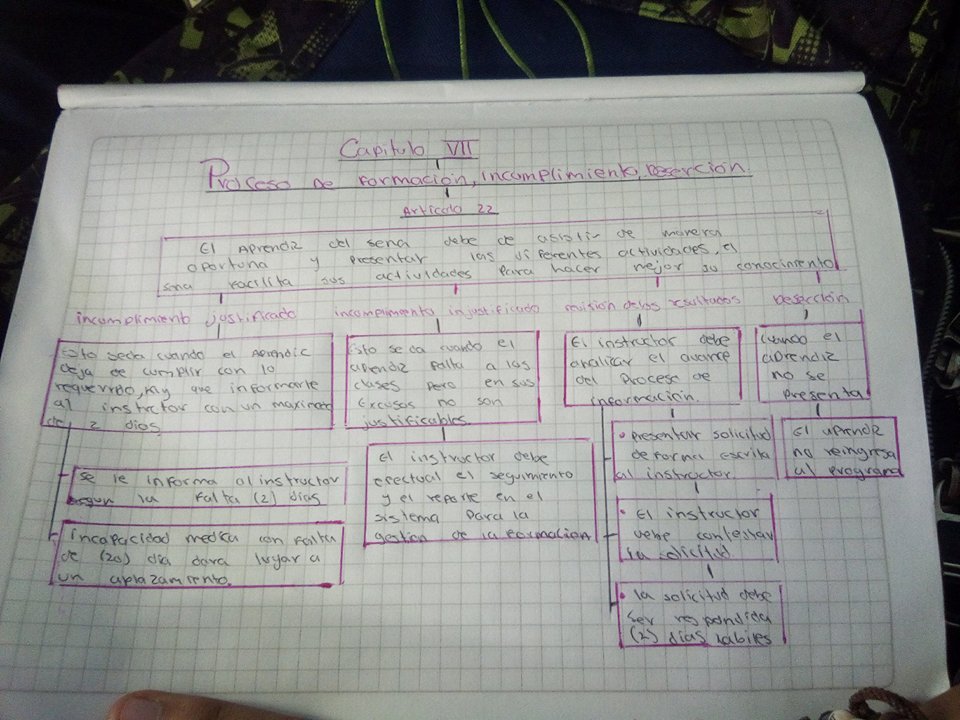 Capitulo VII
Proceso de Formación, incumplimiento, Deserción.
Articulo 22
El Aprendiz del sena debe de asistir de manera
oportuna y presentar las diferentes actividades, el
sena facilita sus actividades para hacer mejor su conocimiento
incumplimiento justificado
Esto seda cuando el Aprendiz
deja de cumplir con lo
requerido, hay que informarle
al instrctor con un maximo
de 2 dias
se le informa al instructor
segun la falta (2) dias
incapacidad medica con falta
de (20) dia dara lugar a
un aplazamiento.
incumplimiento injustificado
Esto se da cuando el
aprendiz falta a las
clases pero en sus
Excusas no son
justificables.
El instructor debe
efectual el seguimiento
y el reporte en el
sistema para la
gestion de la formacion
revision de los resultados
El instructor debe
analizar el avance
del procese de
informacion.
• presentar solicitud
de forma escrita
al instructor
• El instructor
debe contestar
la solicitud
• la solicitud debe
ser respondida
(2) dias habiles
Deserción
cuando el
aprendiz
no se
presenta
El aprendiz
no reingresa
al programa